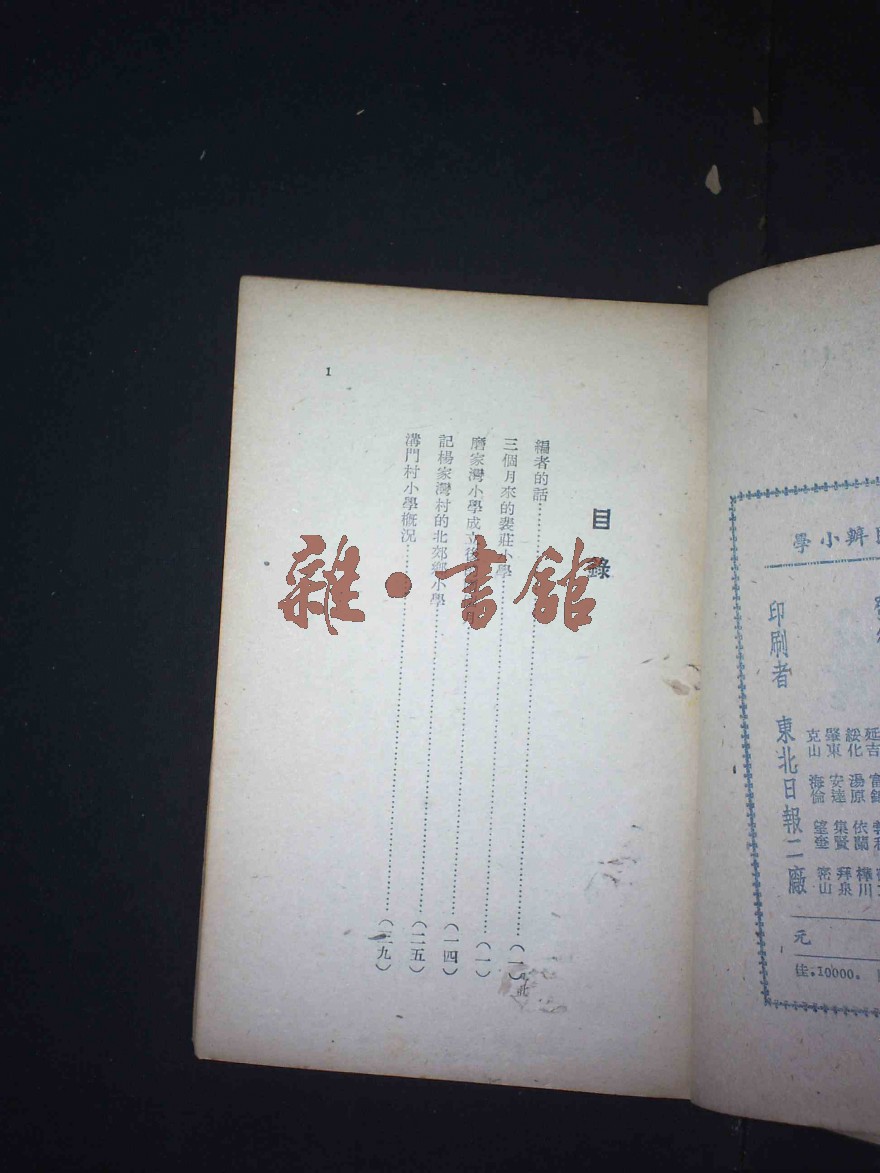 民辦小學
印刷者 東北日報二廠
延吉
綏化 湯原 依蘭 樺川
肇東 安達 集賢 拜泉
克山 海倫 望奎 密山
元
佳.10000.
目錄
編者的話……(一)
三個月來的裴莊小學……(一)
磨家灣小學成立後……(一四)
記楊家灣村的北郊鄉小學……(二五)
溝門村小學概況……(三九)
1
雜·書館